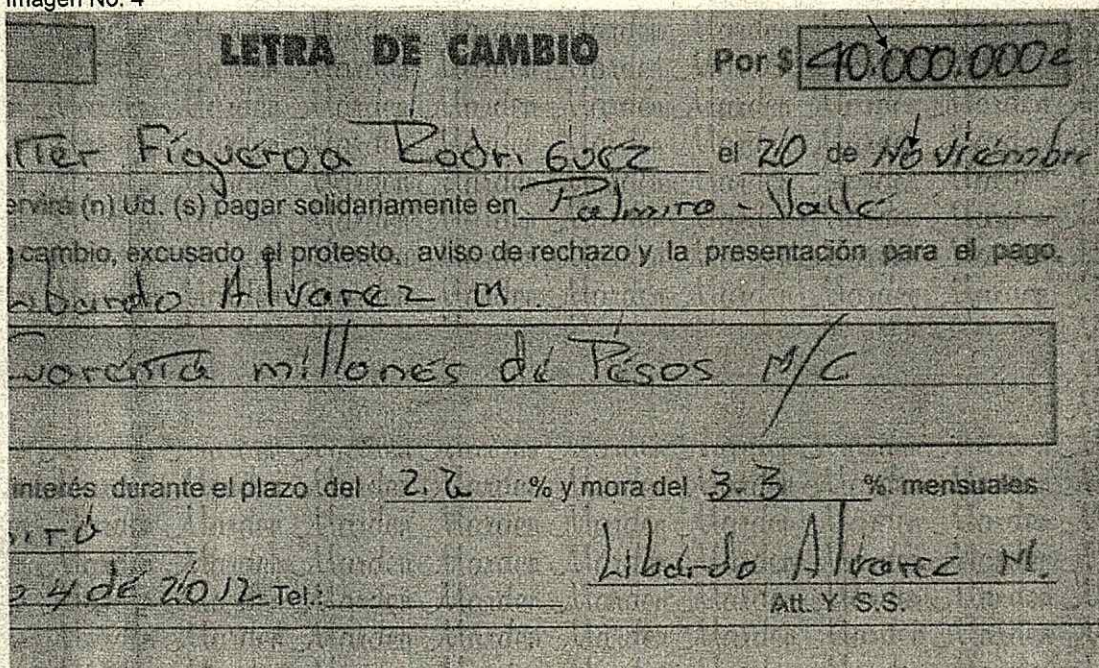 Imagen No. 4
LETRA DE CAMBIO Por $ 40.000.000
Figueroa Rodriguez el 20 de Noviembre
(n) Ud. (s) pagar solidariamente en Palmira - Valle
cambio, excusado el protesto, aviso de rechazo y la presentación para el pago.
Alvarez M.
millones de Pesos M/C
interés durante el plazo del 2.2 % y mora del 3.3 % mensuales
4 de 2012 Tel.: Libardo Alvarez M.
Att. Y S.S.